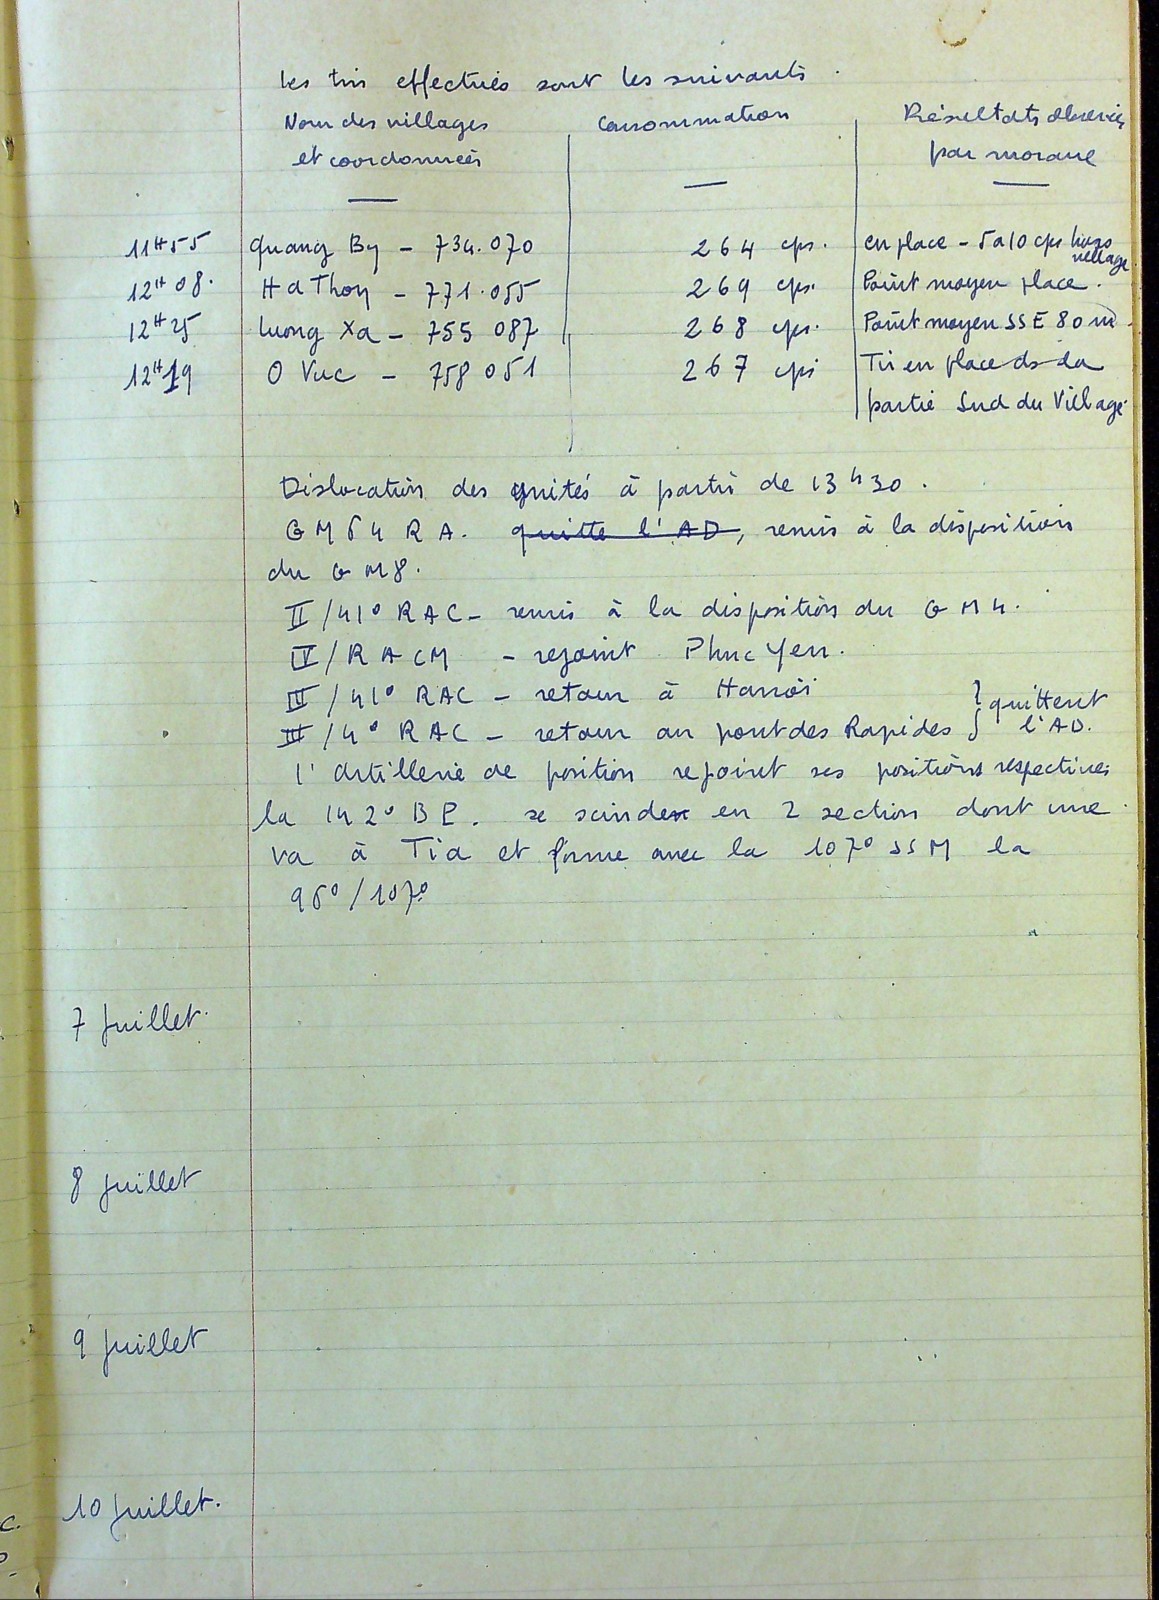 Les tirs effectués sont les suivants.
Nom des villages et coordonnées
Consommation
Résultats observés par morane
11H55 Quang By - 734.070 264 cps. en place - 5 à 10 cps hors village
12H08. Ha Thoy - 771.055 269 cps. Point moyen place.
12H25 Luong Xa - 755 087 268 cps. Point moyen SSE 80 m.
12H19 O Vuc - 758 051 267 cps Tir en place ds la
partie Sud du Village.
Dislocation des unités à partir de 13h30.
GM64 RA. quitte l'AD, remis à la disposition
du GM8.
II/41° RAC - remis à la disposition du GM4.
IV/RACM - rejoint Phuc Yen.
III/41° RAC - retour à Hanoi
III/4° RAC - retour au pont des Rapides } quittent l'AD.
l'artillerie de position rejoint ses positions respectives
la 142° BP. se scinde en 2 section dont une
va à Tia et forme avec la 107° SSM la
96°/107°
7 Juillet.
8 Juillet
9 Juillet
10 Juillet.